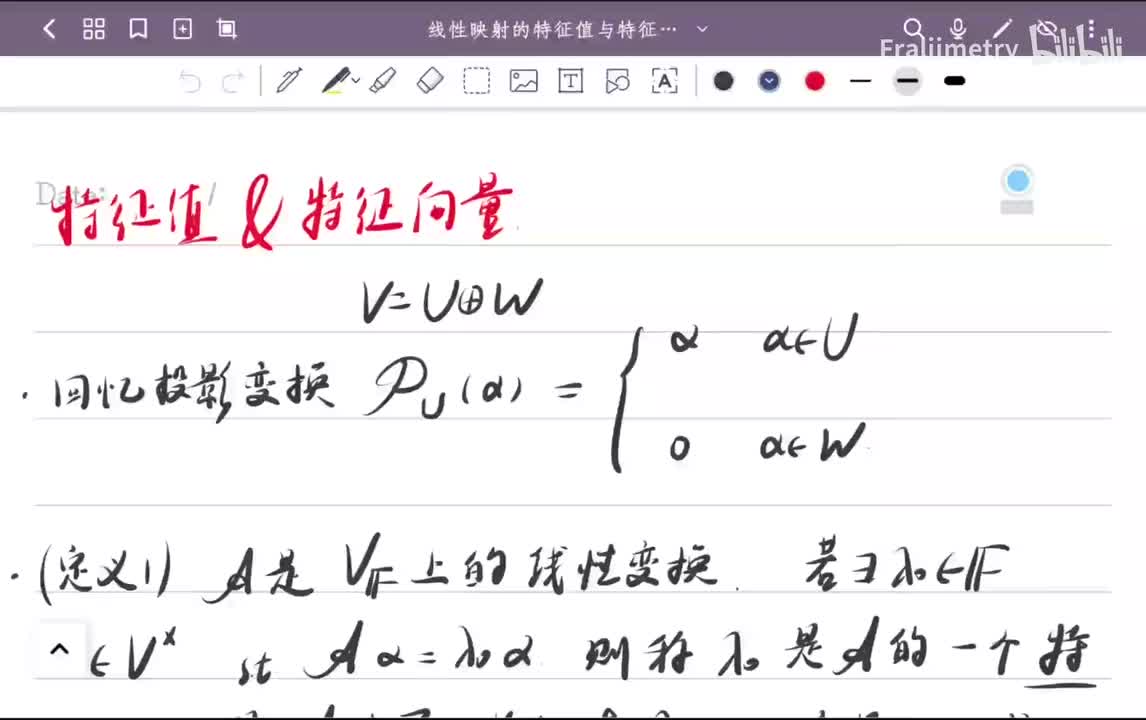 线性映射的特征值与特征…
Fraljimetry bilibili
Date: /
特征值 & 特征向量
V=U⊕W
· 回忆投影变换 𝒫_U(α) = { α α∈U
0 α∈W
· (定义1) 𝒜是 V_𝔽 上的线性变换. 若∃λ₀∈𝔽
∈V^x st 𝒜α=λ₀α 则称 λ₀ 是𝒜的一个特